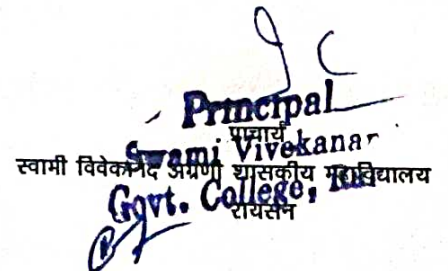 Principal
प्राचार्य
Swami Vivekanan
स्वामी विवेकानंद अग्रणी शासकीय महाविद्यालय
Govt. College,
रायसेन